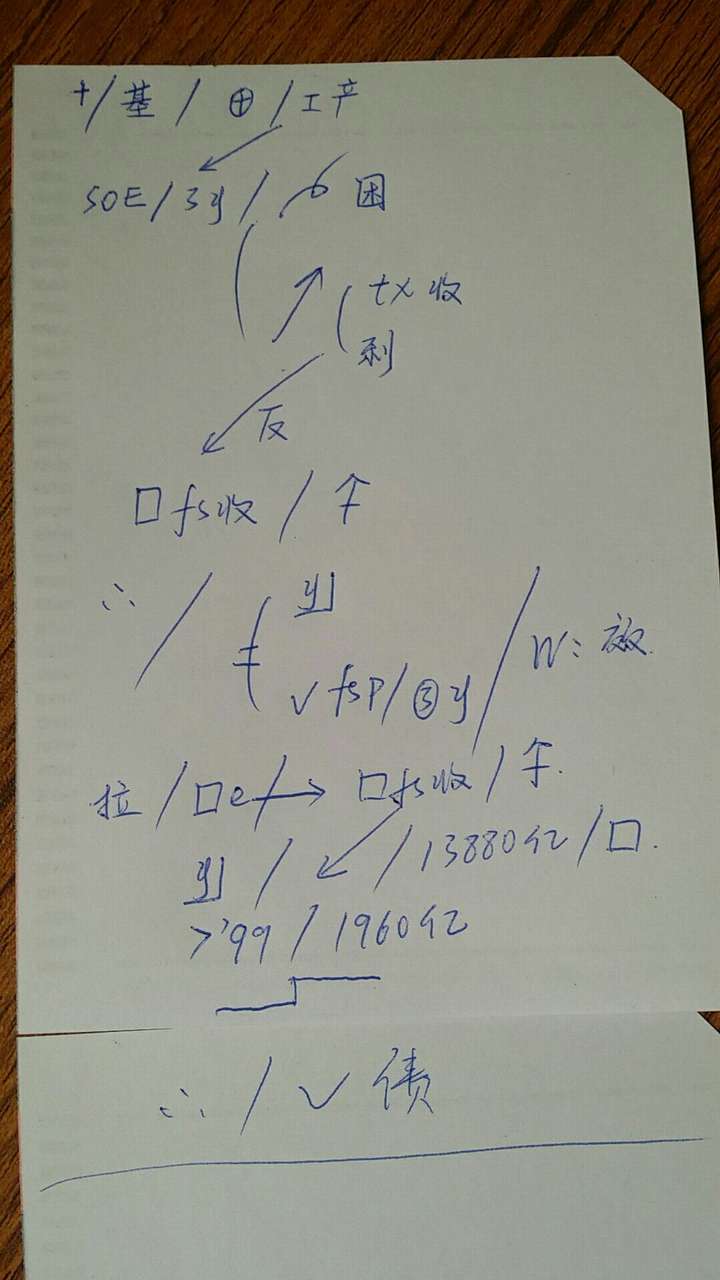 +/基/⊕/工产
SOE/3y/困
tx收
利
反
口fs收/个
∴/
≠
vfsP/③y/W:放
拉/口e/→口fs收/个.
/↙/13880亿/口.
>'99/1960亿
∴/√债